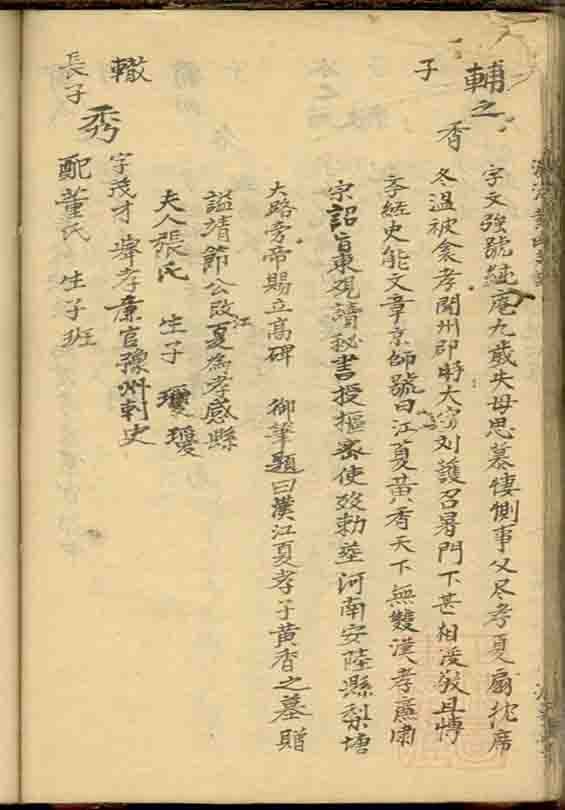 輔之
子 香
字文強號純庵九歲失母思慕悽惻事父尽孝夏扇枕席
冬溫被衾孝聞州郡時大守刘護召署門下甚相愛敬且博
孝經史能文章京師號曰江夏黃香天下無雙漢孝廉肅
宗詔旨東观讀秘書授樞密使歿勅塟河南安陸縣梨塘
大路旁帝賜立高碑 御筆題曰漢江夏孝子黃香之墓贈
謚靖節公改江夏為孝感縣
夫人張氏 生子 瓊
轍
長子 秀
字茂才 擧孝廉官豫州刺史
配董氏 生子班